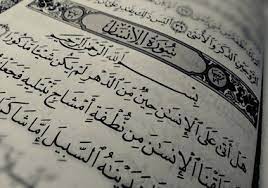 سُورَةُ الْإِنسَانِ
بِسْمِ اللَّهِ الرَّحْمَٰنِ الرَّحِيمِ
هَلْ أَتَىٰ عَلَى الْإِنسَٰنِ حِينٌ مِّنَ الدَّهْرِ لَمْ يَكُن شَيْـًٔا مَّذْكُورًا
خَلَقْنَا الْإِنسَٰنَ مِن نُّطْفَةٍ أَمْشَاجٍ نَّبْتَلِيهِ
هَدَيْنَٰهُ السَّبِيلَ إِمَّا شَاكِرًا